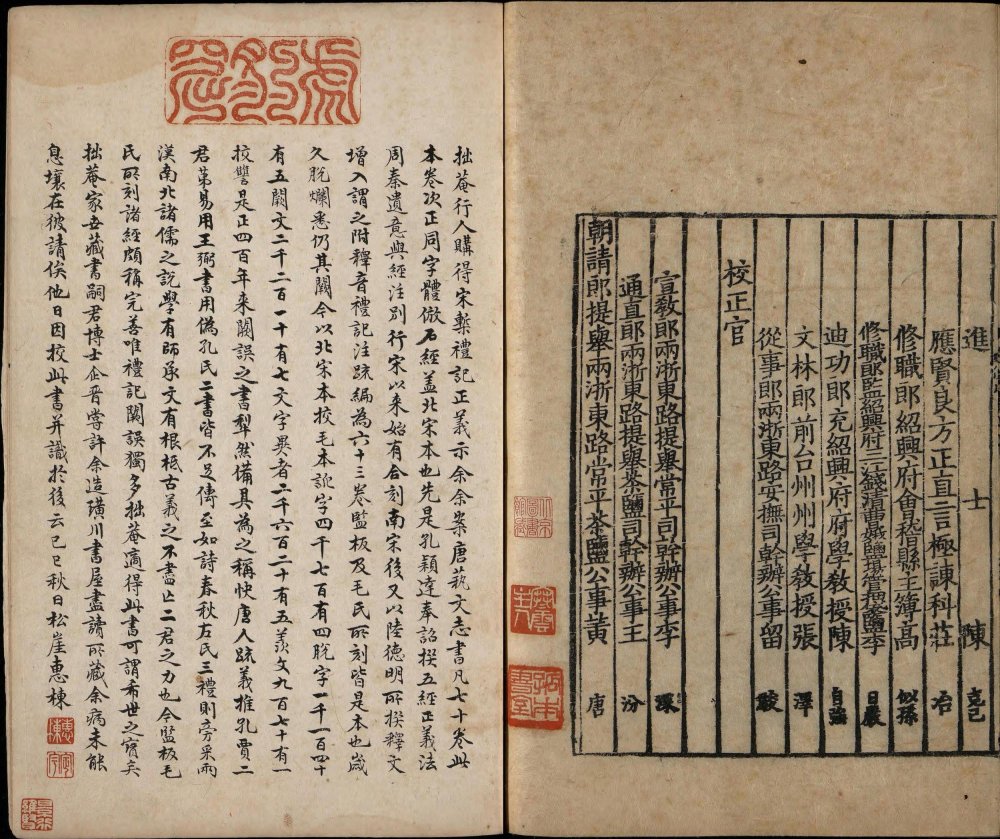 進士陳 克己
應賢良方正直言極諫科莊 冶
修職郎紹興府會稽縣主簿高 似孫
修職郎監紹興府三江錢清曹娥鹽場管押袋鹽李 日嚴
迪功郎充紹興府府學教授陳 自強
文林郎前台州州學教授張 澤
從事郎兩浙東路安撫司幹辦公事留 駿
校正官
宣教郎兩浙東路提舉常平司幹辦公事李 深
通直郎兩浙東路提舉茶鹽司幹辦公事王 汾
朝請郎提舉兩浙東路常平茶鹽公事黃 唐
拙菴行人購得宋槧禮記正義示余余案唐藝文志書凡七十卷此
本卷次正同字體倣石經蓋北宋本也先是孔穎達奉詔撰五經正義法
周秦遺意與經注別行宋以來始有合刻南宋後又以陸德明所撰釋文
增入謂之附釋音禮記注疏編為六十三卷監板及毛氏所刻皆是本也歲
久脫爛悉仍其闕今以北宋本挍毛本訛字四千七百有四脫字一千一百四十
有五闕文二千二百一十有七文字異者二千六百二十有五羨文九百七十有一
挍讐是正四百年來闕誤之書犁然備具為之稱快唐人疏義推孔賈二
君苐易用王弼書用偽孔氏二書皆不足傳至如詩春秋左氏三禮則旁采兩
漢南北諸儒之說學有師承文有根柢古義之不盡亡二君之力也今監板毛
氏所刻諸經頗稱完善唯禮記闕誤獨多拙菴適得此書可謂希世之寶矣
拙菴家世藏書嗣君博士企晉嘗許余造璜川書屋盡讀所藏余病未能
息壤在彼請俟他日因挍此書并識於後云己巳秋日松崖惠棟
惠棟
定宇
景行維賢